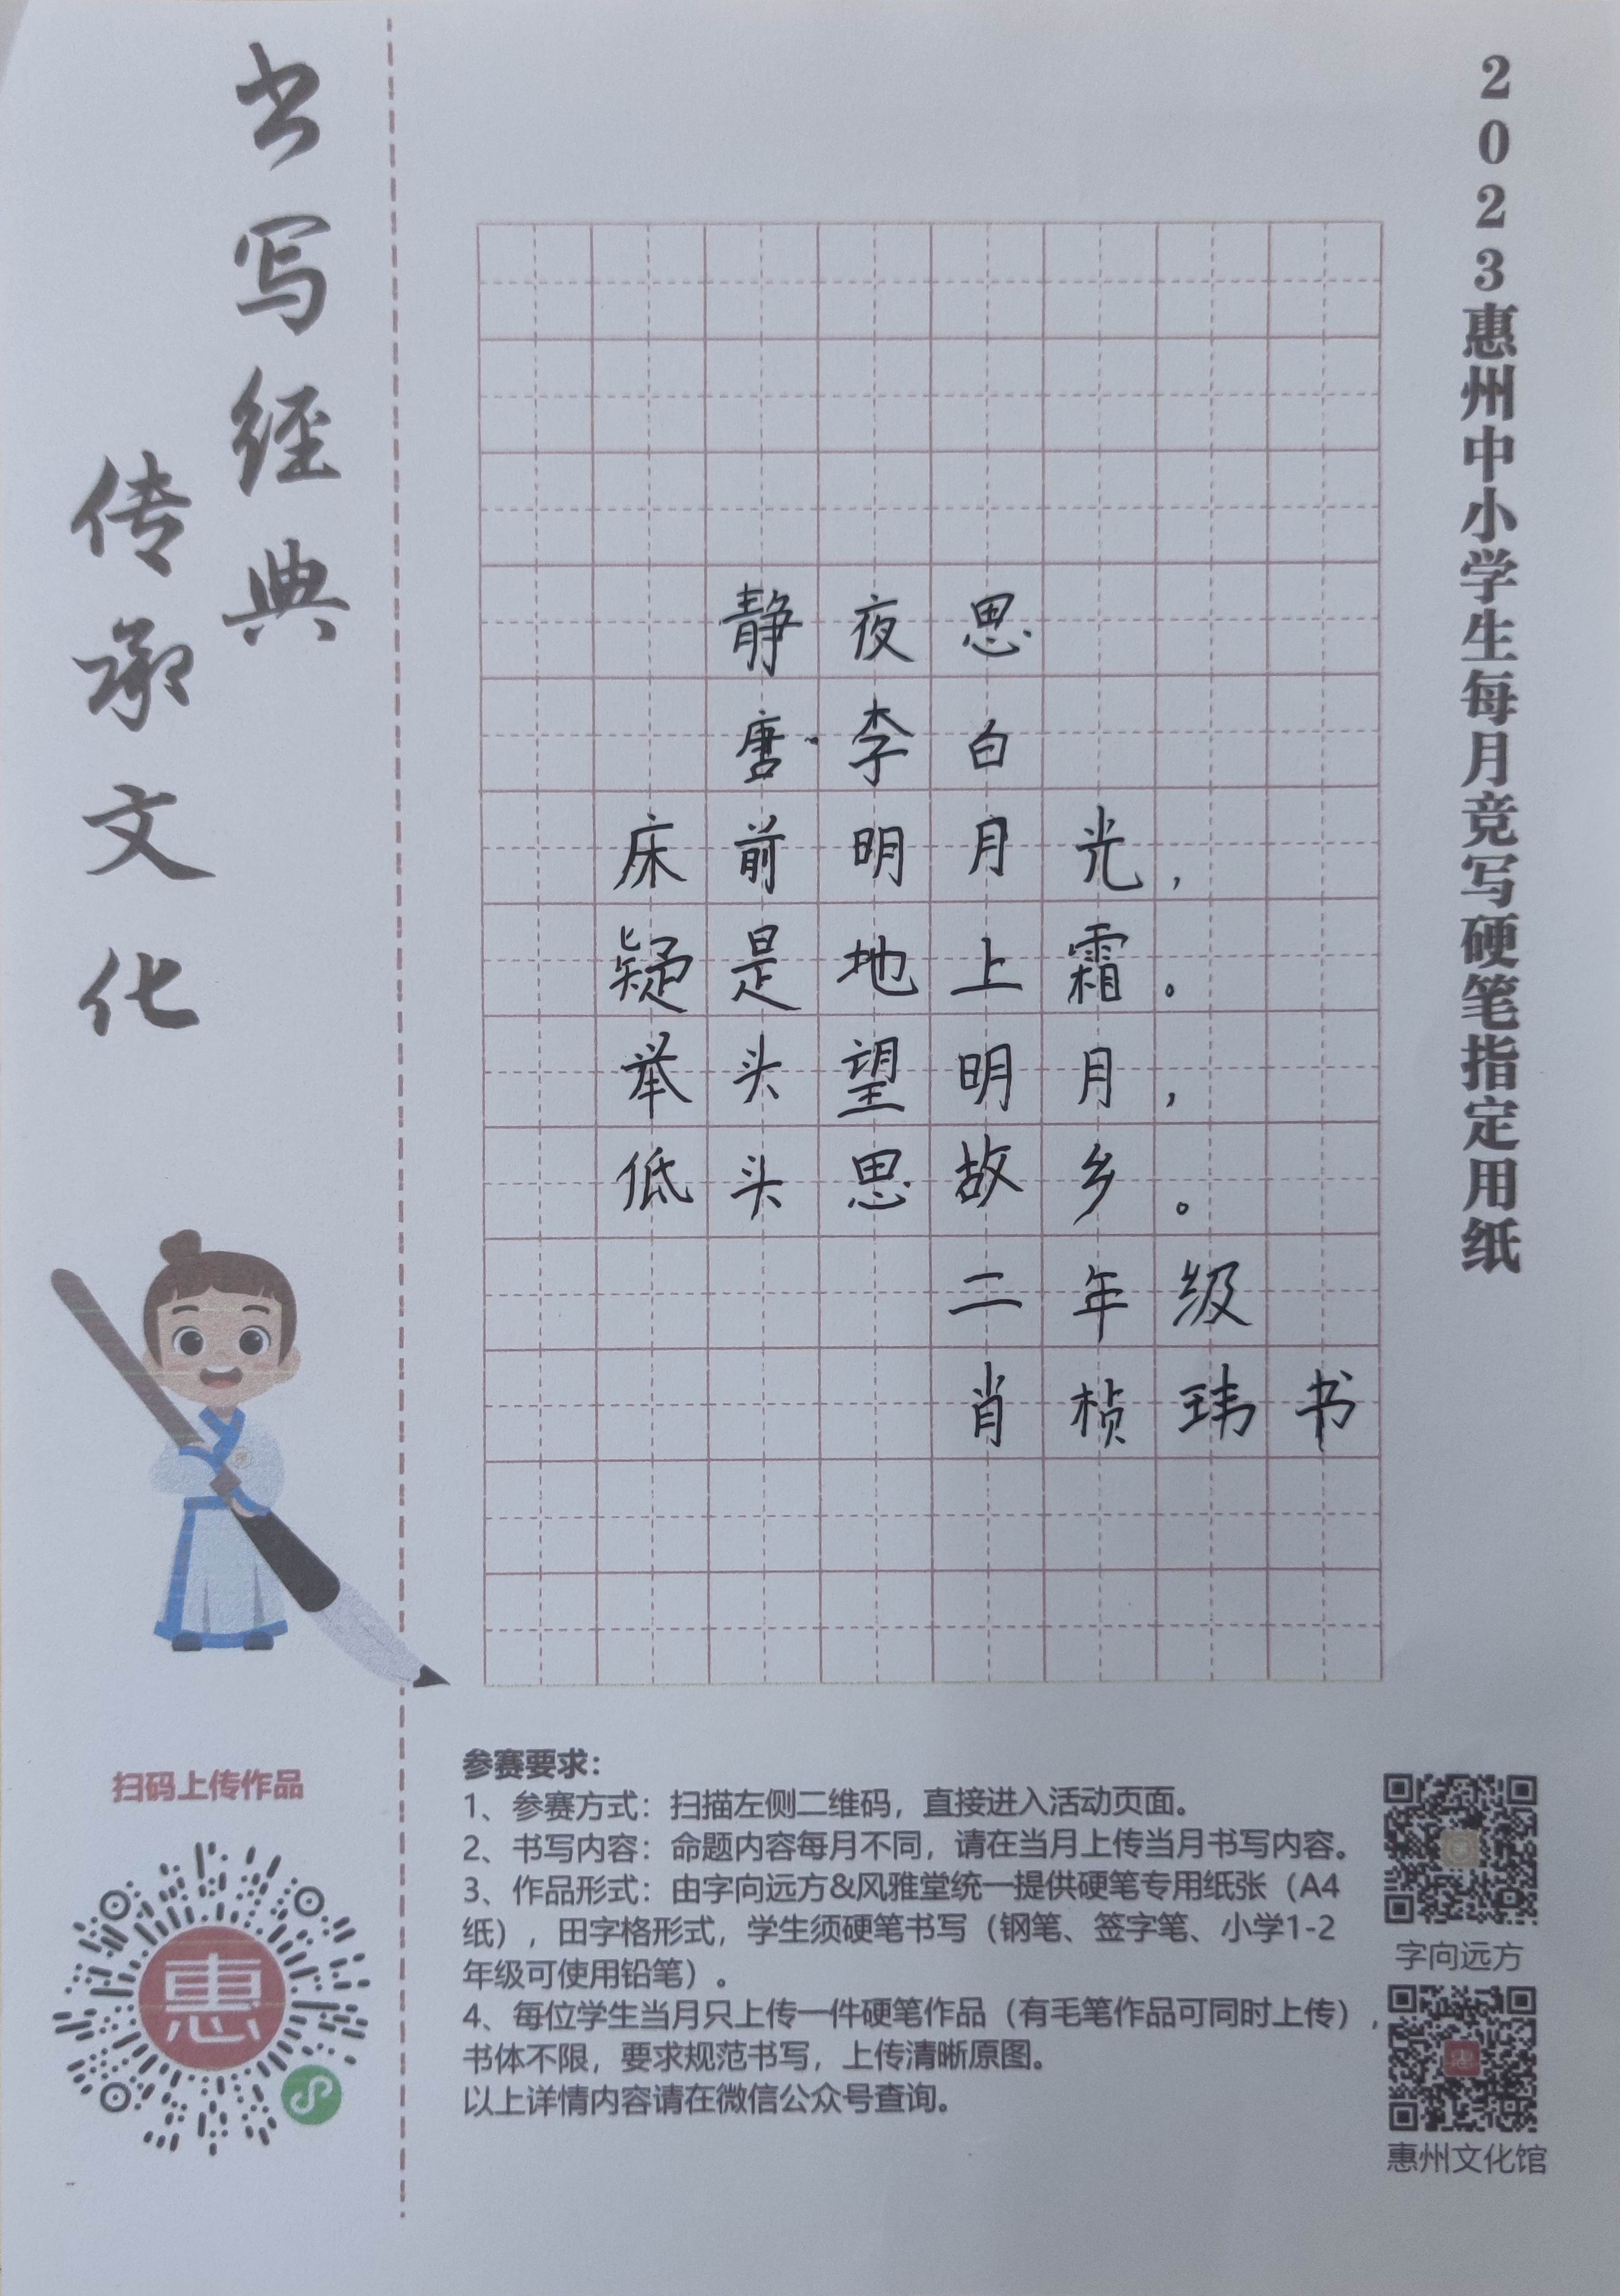 书写经典
传承文化
2023惠州中小学生每月竞写硬笔指定用纸
静夜思
唐·李白
床前明月光，
疑是地上霜。
举头望明月，
低头思故乡。
二年级
肖桢玮书
扫码上传作品
惠
参赛要求：
1、参赛方式：扫描左侧二维码，直接进入活动页面。
2、书写内容：命题内容每月不同，请在当月上传当月书写内容。
3、作品形式：由字向远方&风雅堂统一提供硬笔专用纸张（A4
纸），田字格形式，学生须硬笔书写（钢笔、签字笔、小学1-2
年级可使用铅笔）。
4、每位学生当月只上传一件硬笔作品（有毛笔作品可同时上传），
书体不限，要求规范书写，上传清晰原图。
以上详情内容请在微信公众号查询。
字向远方
惠州文化馆